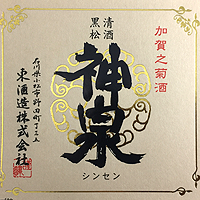 加賀之菊酒
清酒
黒松
神泉
シンセン
石川県小松市野田町丁三五
東酒造株式会社